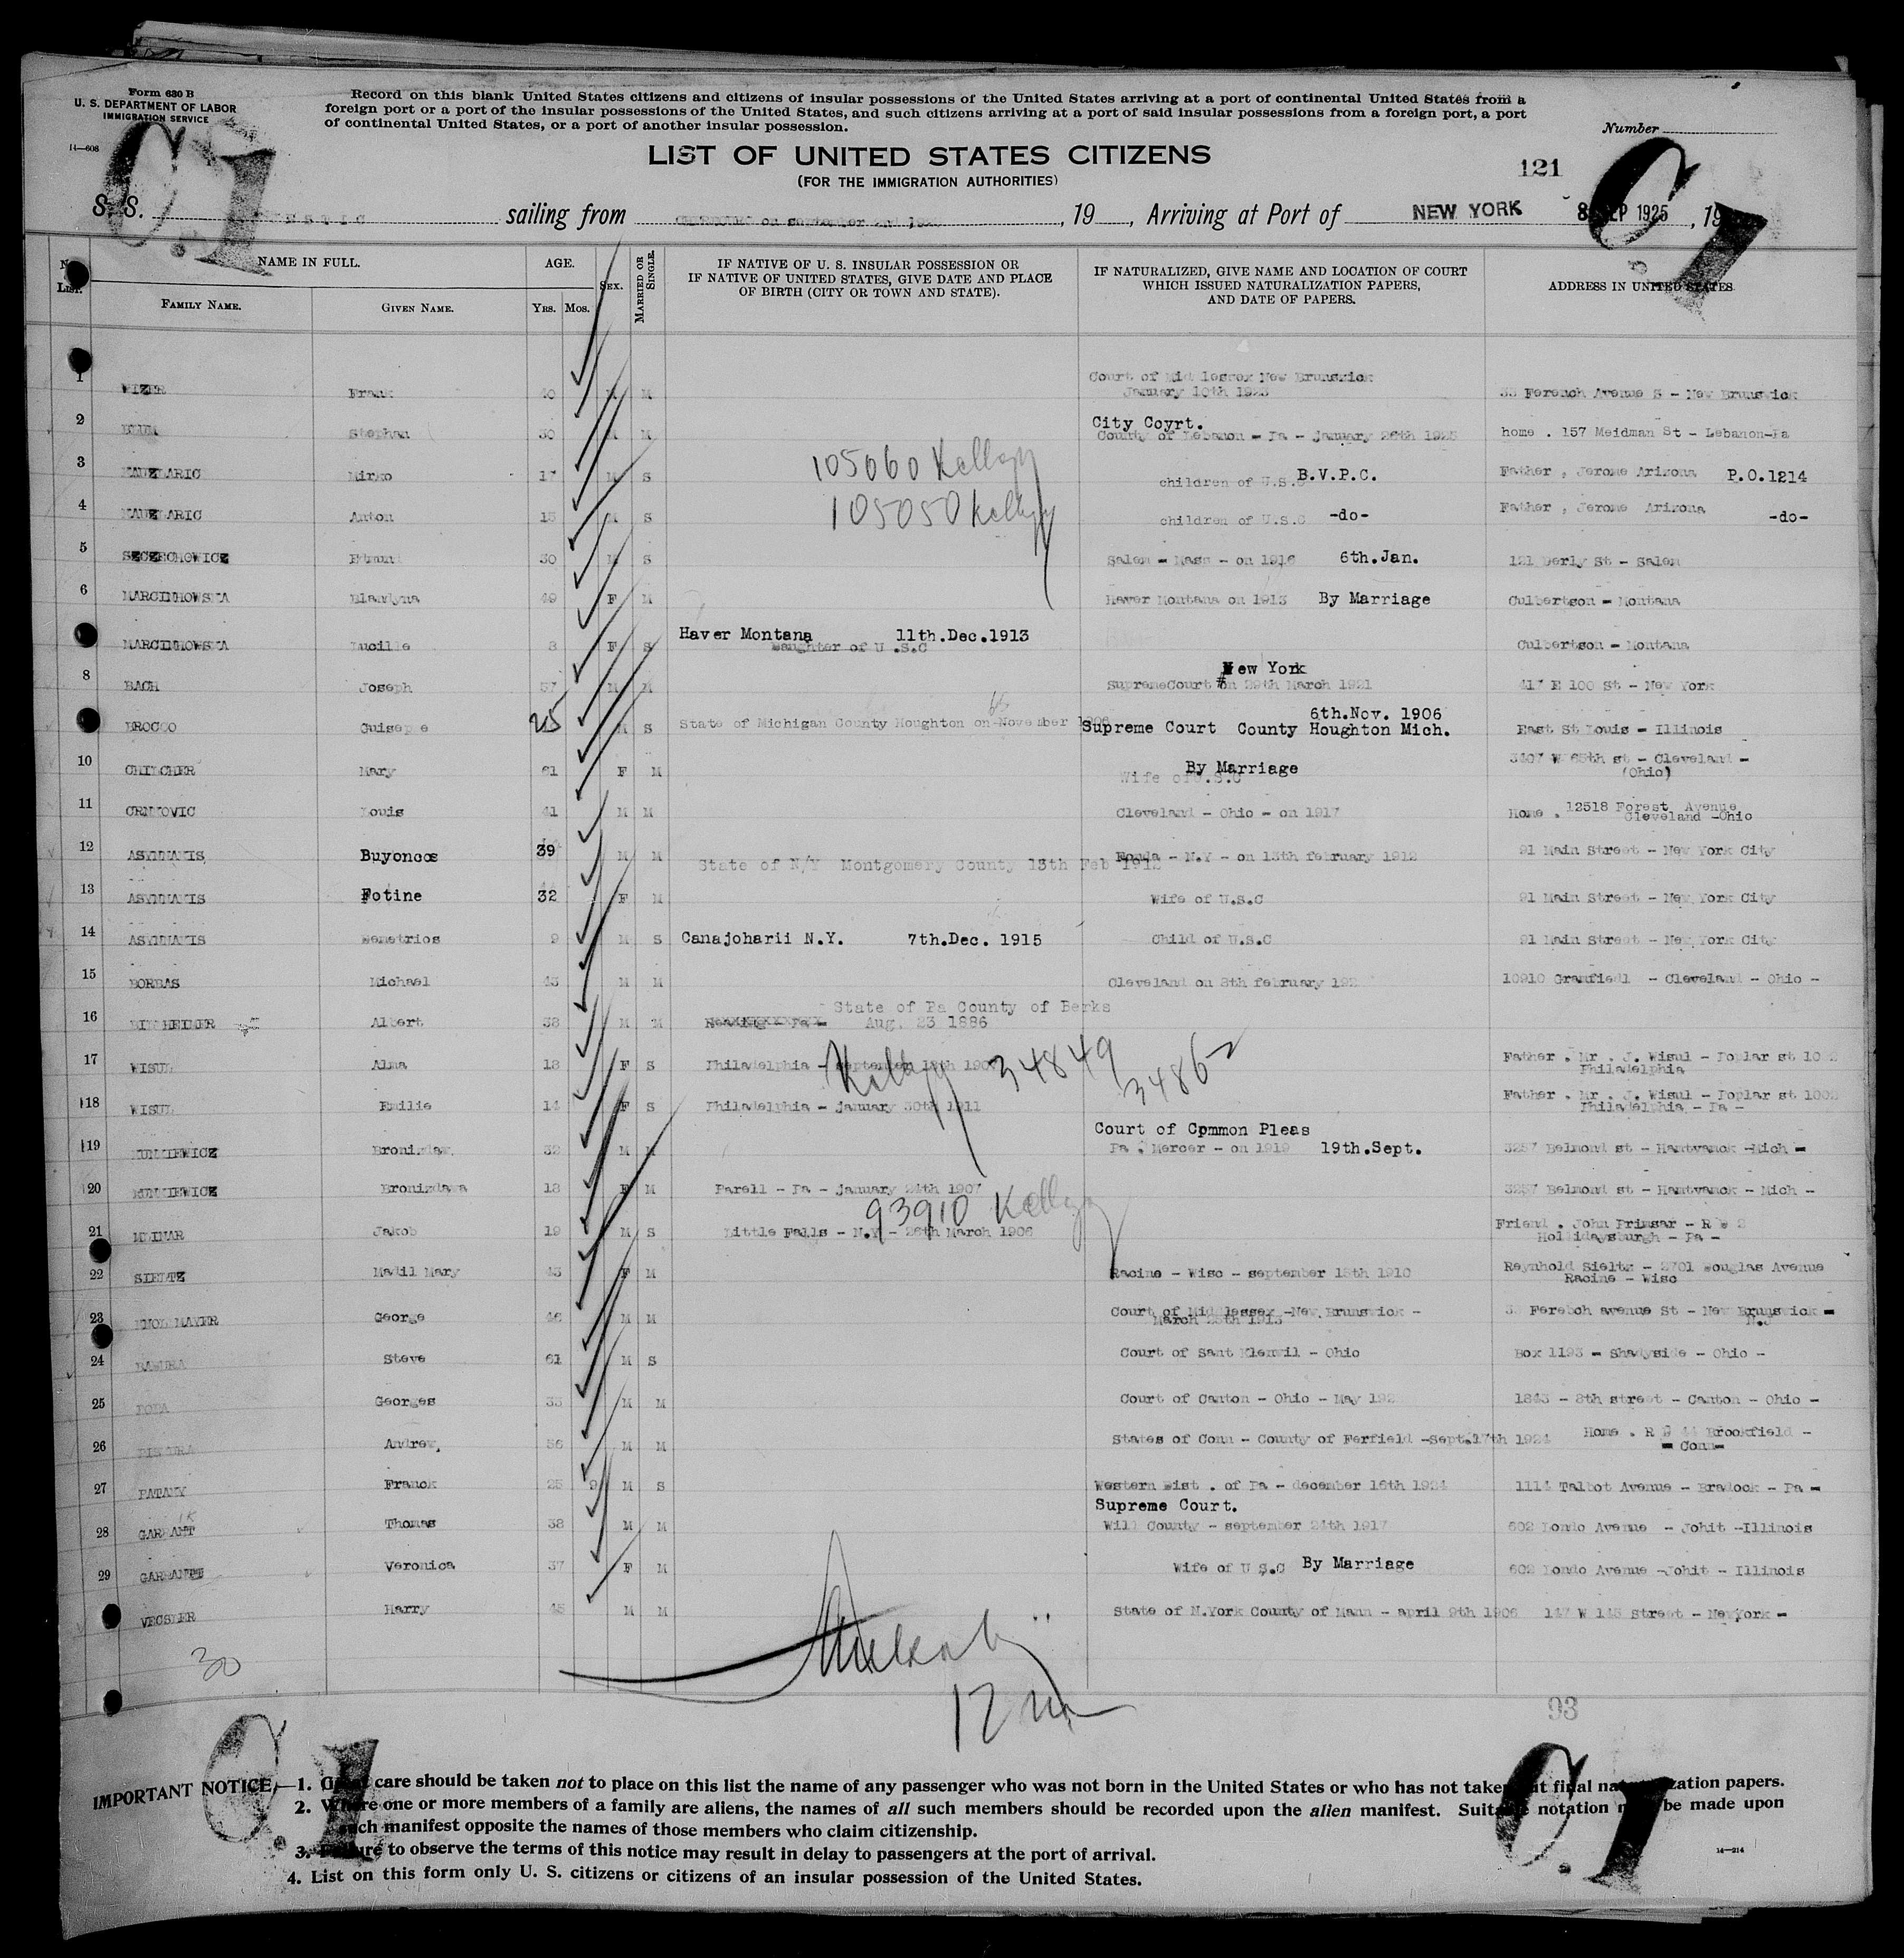 Form 630 B
U. S. DEPARTMENT OF LABOR
IMMIGRATION SERVICE
14—608
Record on this blank United States citizens and citizens of insular possessions of the United States arriving at a port of continental United States from a
foreign port or a port of the insular possessions of the United States, and such citizens arriving at a port of said insular possessions from a foreign port, a port
of continental United States, or a port of another insular possession.
Number
LIST OF UNITED STATES CITIZENS
(FOR THE IMMIGRATION AUTHORITIES)
121
S. S. sailing from on september , 19 , Arriving at Port of NEW YORK 8 SEP 1925 , 19
NAME IN FULL. AGE. SEX. MARRIED OR SINGLE.
IF NATIVE OF U. S. INSULAR POSSESSION OR
IF NATIVE OF UNITED STATES, GIVE DATE AND PLACE
OF BIRTH (CITY OR TOWN AND STATE).
IF NATURALIZED, GIVE NAME AND LOCATION OF COURT
WHICH ISSUED NATURALIZATION PAPERS,
AND DATE OF PAPERS.
ADDRESS IN UNITED STATES
FAMILY NAME. GIVEN NAME. YRS. MOS.
1 WIZER Frank 40 M M Court of Middlessex New Brunswick
January 10th 1923 Ferench Avenue S - New Brunswick
2 Stephan 30 M M City Coyrt.
County of Lebanon - Pa - January 26th 1925 home . 157 Meidman St - Lebanon-Pa
3 Mirko 17 M S 105060 Kellogg children of U.S.C B.V.P.C. Father , Jerome Arizona P.O.1214
4 Anton 15 M S 105050 Kellogg children of U.S.C -do- Father , Jerome Arizona -do-
5 SZCZECHOWICZ 30 M S Salem - Mass - on 1916 6th.Jan. 121 Derly St - Salem
6 Blandyna 49 F M Haver Montana on 1913 By Marriage Culbertson - Montana
Lucille 8 F S Haver Montana 11th.Dec.1913
Daughter of U.S.C Culbertson - Montana
8 BACH Joseph 57 M M New York
SupremeCourt on 29th March 1921 417 E 100 St - New York
BROCCO Guiseppe 25 M S State of Michigan County Houghton on November 1906 6th.Nov. 1906
Supreme Court County Houghton Mich. East St Louis - Illinois
10 Mary 61 F M By Marriage
Wife of U.S.C 3407 W 65th st - Cleveland -
(Ohio)
11 Louis 41 M M Cleveland - Ohio - on 1917 Home . 12518 Forest Avenue
Cleveland -Ohio
12 Buyonces 39 M M State of N/Y Montgomery County 13th Feb 1912 Fonda - N.Y - on 13th february 1912 91 Main Street - New York City
13 Fotine 32 F M Wife of U.S.C 91 Main Street - New York City
14 Demetrios 9 M S Canajoharii N.Y. 7th.Dec. 1915 Child of U.S.C 91 Main Street - New York City
15 BORBAS Michael 43 M M Cleveland on 8th february 192 10910 - Cleveland - Ohio -
16 Albert 38 M M State of Pa County of Berks
Reading - Pa - Aug. 23 1886
17 WISUL Alma 18 F S Philadelphia - september Kellogg 34849 Father . Mr . J. Wisul - Poplar st
Philadelphia
18 WISUL Emilie 14 F S Philadelphia - January 30th 1911 34862 Father . Mr . J. Wisul - Poplar st 1002
Philadelphia - Pa -
19 Bronislaw 32 M M Court of Common Pleas
Pa . Mercer - on 1919 19th.Sept. 3257 Belmond st - Hamtvanck -Mich -
20 Bronislawa 18 F M Farell - Pa - January 24th 1907 3257 Belmond st - Hamtvanck - Mich -
93910 Kellogg
21 MLINAR Jakob 19 M S Little Falls - N.Y - 26th March 1906 Friend . John Primsar - R 2
Hollidaysburgh - Pa -
22 Madil Mary 43 F M Racine - Wisc - september 15th 1910 Reynhold Sieltz - 2701 Douglas Avenue
Racine - Wisc
23 George 46 M M Court of Middlessex -New Brunswick -
March 25th 1913 Ferebch avenue St - New Brunswick -
N.J
24 Steve 61 M S Court of Sant Klenwil - Ohio Box 1193 - Shadyside - Ohio -
25 POPA Georges 33 M M Court of Canton - Ohio - May 192 1843 - 8th street - Canton - Ohio -
26 Andrew 56 M M States of Conn - County of Ferfield -Sept.17th 1924 Home . R 44 Brookfield -
- Conn-
27 PATANY Franck 25 9 M S Western Dist . of Pa - december 16th 1924 1114 Talbot Avenue - Bradock - Pa -
28 Thomas 38 M M Supreme Court.
Will County - september 24th 1917 602 Londo Avenue - Johit -Illinois
29 Veronica 37 F M Wife of U S.C By Marriage 602 Londo Avenue -Johit - Illinois
VECSLER Harry 45 M M State of N.York County of Mann - april 9th 1906 147 W 143 Street - NewYork -
30
12
93
IMPORTANT NOTICE.—1. Great care should be taken not to place on this list the name of any passenger who was not born in the United States or who has not taken out final naturalization papers.
2. Where one or more members of a family are aliens, the names of all such members should be recorded upon the alien manifest. Suitable notation may be made upon
such manifest opposite the names of those members who claim citizenship.
3. Failure to observe the terms of this notice may result in delay to passengers at the port of arrival.
4. List on this form only U. S. citizens or citizens of an insular possession of the United States.
14—214